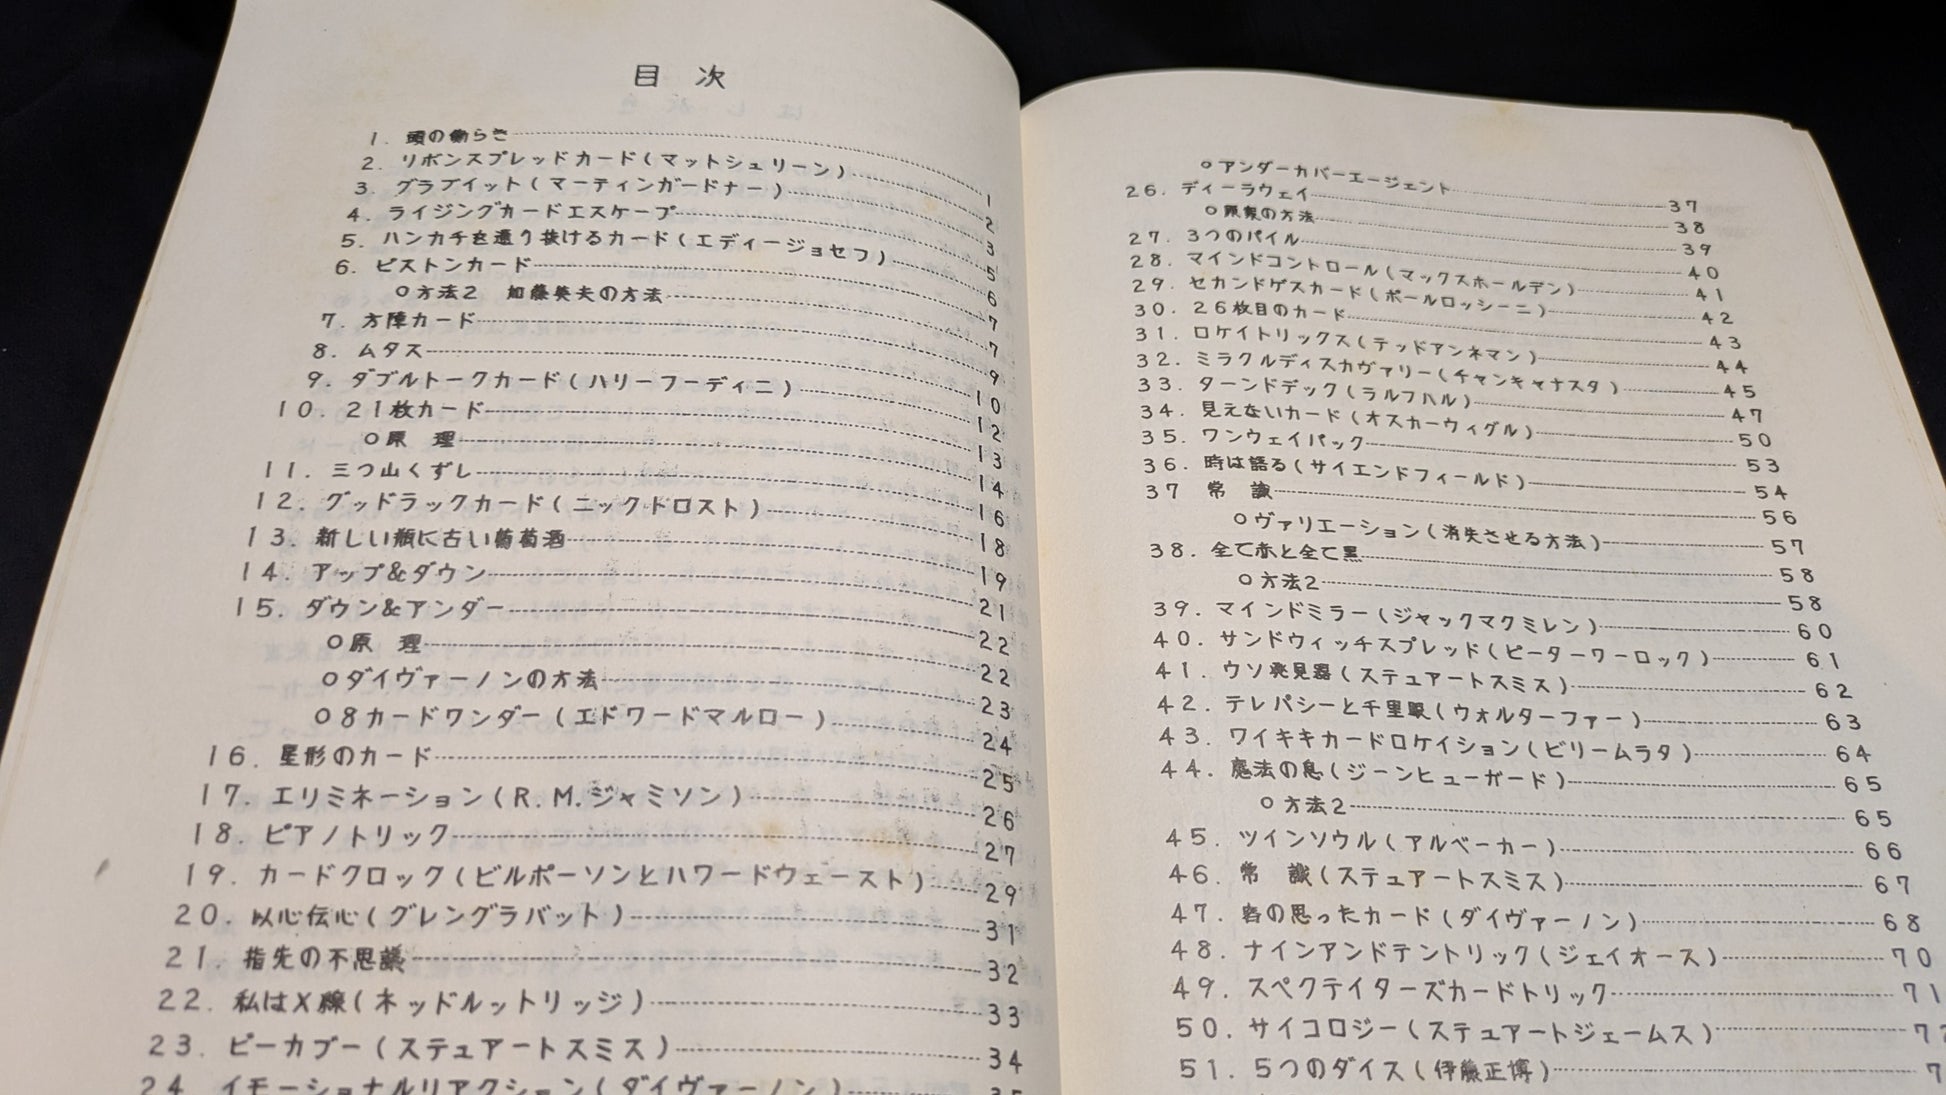 目 次
1. 頭の働らき 1
2. リボンスプレッドカード(マットシュリーン) 2
3. グラブイット(マーティンガードナー) 3
4. ライジングカードエスケープ 5
5. ハンカチを通り抜けるカード(エディージョセフ) 6
6. ピストンカード 7
○方法2 加藤英夫の方法 7
7. 方陣カード 9
8. ムタス 10
9. ダブルトークカード(ハリーフーディニ) 12
10. 21枚カード 13
○原 理 14
11. 三つ山くずし 16
12. グッドラックカード(ニックドロスト) 18
13. 新しい瓶に古い葡萄酒 19
14. アップ&ダウン 21
15. ダウン&アンダー 22
○原 理 22
○ダイヴァーノンの方法 23
○8カードワンダー(エドワードマルロー) 24
16. 星形のカード 25
17. エリミネーション(R.M.ジャミソン) 26
18. ピアノトリック 27
19. カードクロック(ビルポーソンとハワードウェースト) 29
20. 以心伝心(グレングラバット) 31
21. 指先の不思議 32
22. 私はX線(ネッドルットリッジ) 33
23. ピーカブー(ステュアートスミス) 34
24. イモーショナルリアクション(ダイヴァーノン) 35
○アンダーカバーエージェント 37
26. ディーラウェイ 38
○原案の方法 39
27. 3つのパイル 40
28. マインドコントロール(マックスホールデン) 41
29. セカンドゲスカード(ポールロッシーニ) 42
30. 26枚目のカード 43
31. ロケイトリックス(テッドアンネマン) 44
32. ミラクルディスカヴァリー(チャンキャナスタ) 45
33. ターンドデック(ラルフハル) 47
34. 見えないカード(オスカーウィグル) 50
35. ワンウェイパック 53
36. 時は語る(サイエンドフィールド) 54
37 常 識 56
○ヴァリエーション(消失させる方法) 57
38. 全て赤と全て黒 58
○方法2 58
39. マインドミラー(ジャックマクミレン) 60
40. サンドウィッチスプレッド(ピーターワーロック) 61
41. ウソ発見器(ステュアートスミス) 62
42. テレパシーと千里眼(ウォルターファー) 63
43. ワイキキカードロケイション(ビリームラタ) 64
44. 魔法の息(ジーンヒューガード) 65
○方法2 65
45. ツインソウル(アルベーカー) 66
46. 常 識(ステュアートスミス) 67
47. 客の思ったカード(ダイヴァーノン) 68
48. ナインアンドテントリック(ジェイオース) 70
49. スペクテイターズカードトリック 71
50. サイコロジー(ステュアートジェームス)
51. 5つのダイス(伊藤正博)